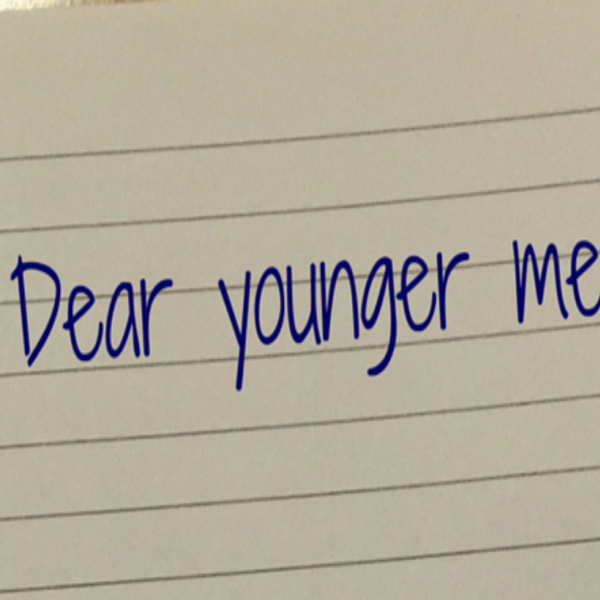 Dear younger me